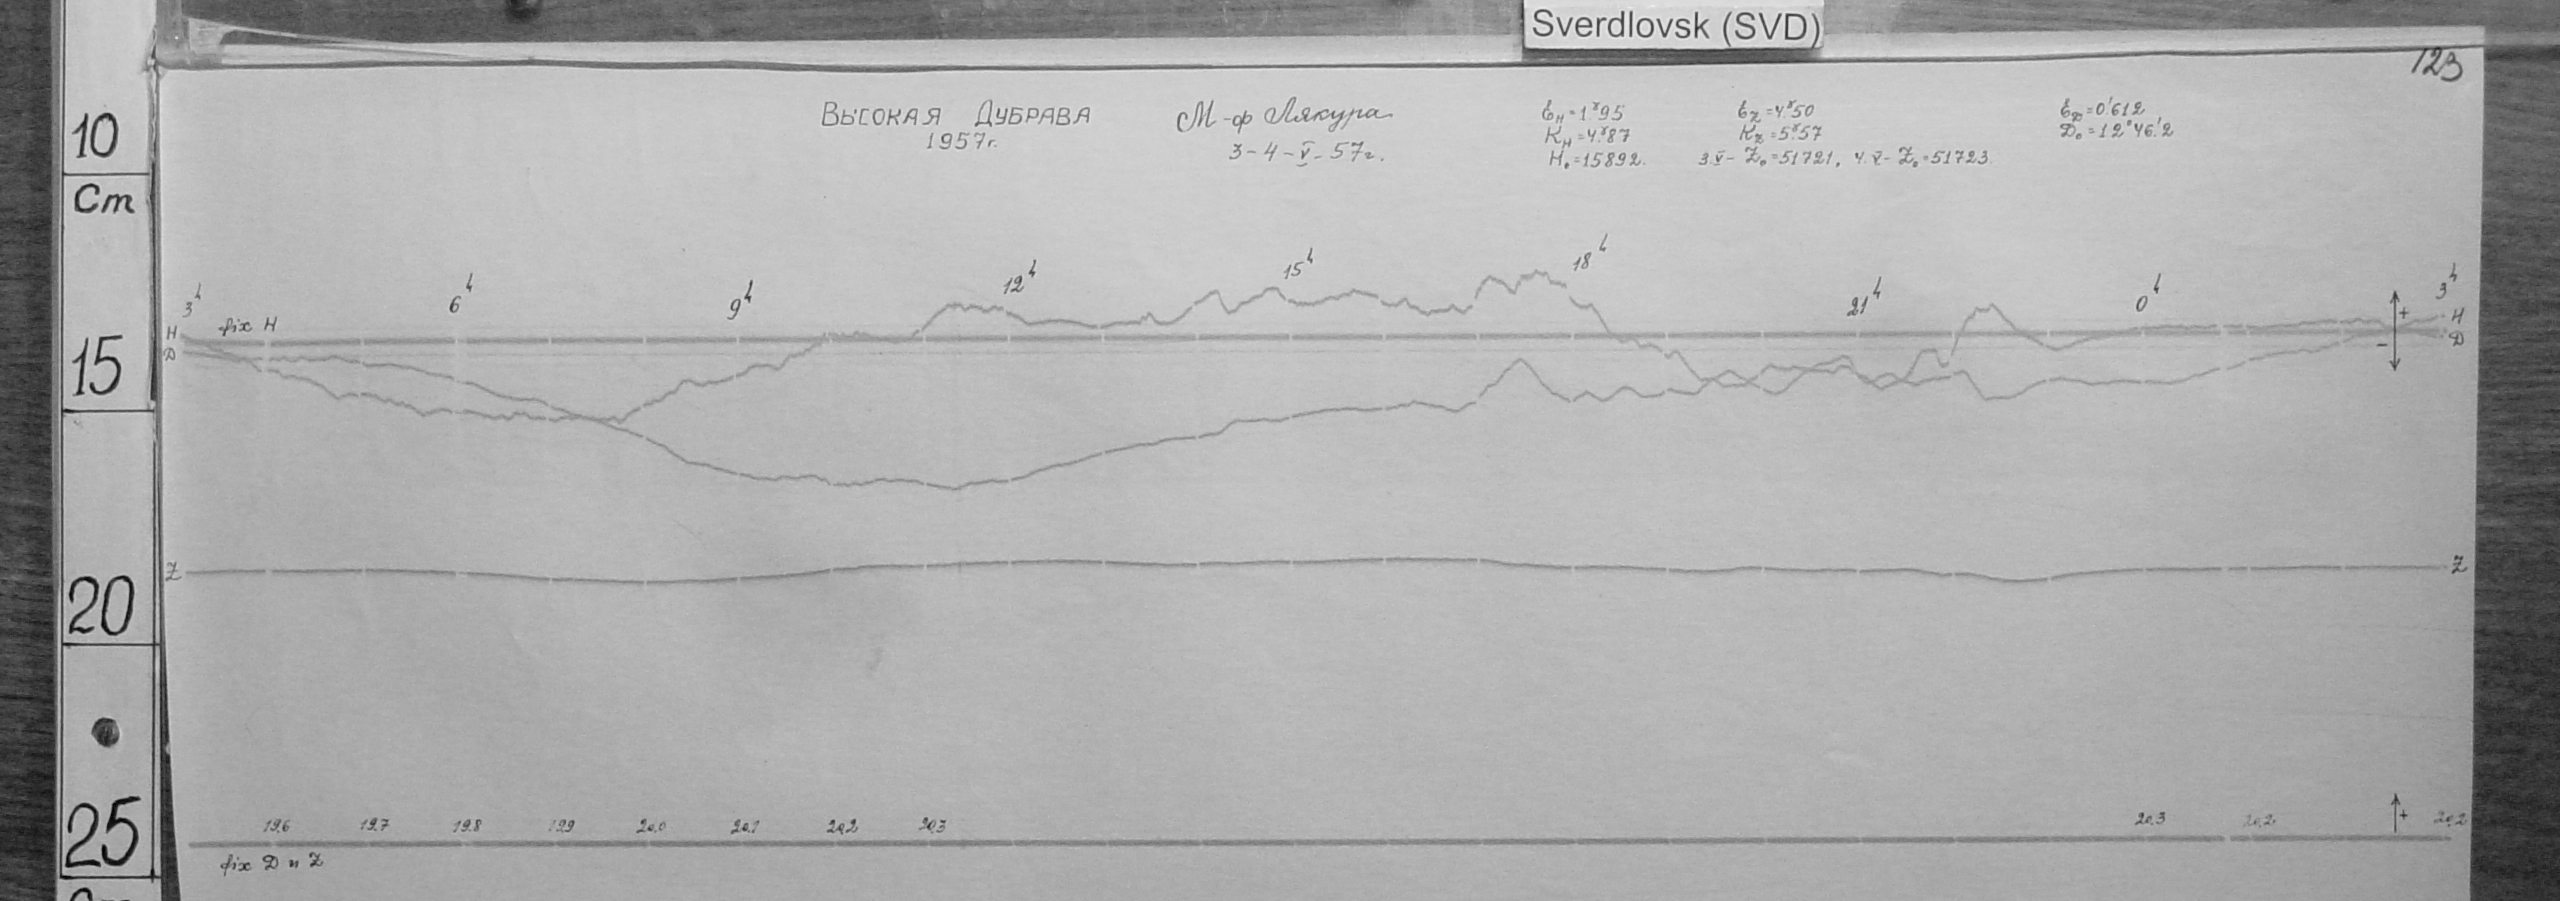 Sverdlovsk (SVD)
123
10
Cm
15
20
25
Высокая Дубрава
1957г.
М-ф Лякура
3-4-V-57г.
Ɛн=1ˠ95
Кн=4ˠ87
Н₀=15892.
Ɛz=4ˠ50
Кz=5ˠ57
3.V- Z₀=51721, 4.V- Z₀=51723.
ƐD=0'612
D₀=12°46'2
3h 6h 9h 12h 15h 18h 21h 0h 3h
H fix H + H
D - D
Z Z
19.6 19.7 19.8 19.9 20.0 20.1 20.2 20.3 20.3 20.2 + 20.2
fix D и Z